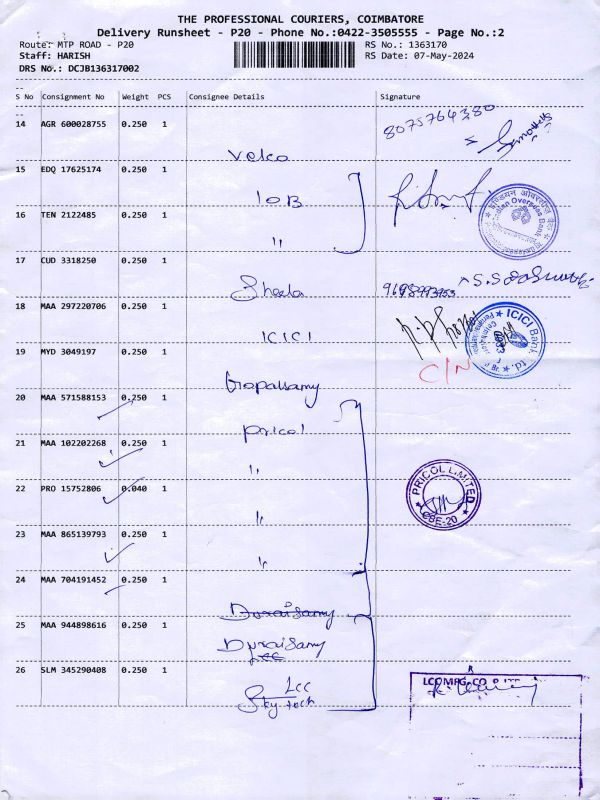 THE PROFESSIONAL COURIERS, COIMBATORE
Delivery Runsheet - P20 - Phone No.:0422-3505555 - Page No.:2
Route: MTP ROAD - P20 RS No.: 1363170
Staff: HARISH RS Date: 07-May-2024
DRS No.: DCJB136317002
S No Consignment No Weight PCS Consignee Details Signature
14 AGR 600028755 0.250 1 8075764380
Velco
15 EDQ 17625174 0.250 1
IOB
16 TEN 2122485 0.250 1
"
Indian Overseas Bank
17 CUD 3318250 0.250 1
Sheela
18 MAA 297220706 0.250 1
ICICI
ICICI Bank Ltd.
C/N
19 MYD 3049197 0.250 1
Gopalsamy
20 MAA 571588153 0.250 1
Pricol
21 MAA 102202268 0.250 1
"
22 PRO 15752806 0.040 1
"
PRICOL LIMITED
CBE-20
23 MAA 865139793 0.250 1
"
24 MAA 704191452 0.250 1
Duraisamy
25 MAA 944898616 0.250 1
Duraisamy
LCC
26 SLM 345290408 0.250 1
LCC
Sky tech